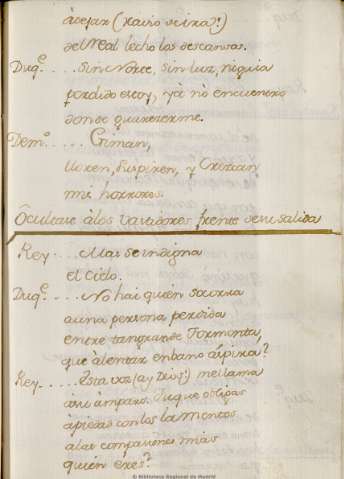 á dejar (
del Real lecho los descansos.
Duq.e .... Sin Norte, sin luz, ni guia
perdido estoy, yà nò encuentro
donde guarezerme.
Dem.s .... Giman,
lloren, suspiren, y
mis horrores.
Ocultase à los vastidores frente de su salida
Rey .... Mas se indigna
el Cielo.
Duq.e .... No hai quien socorra
a una persona perdida
entre tan grande Tormenta,
que à lentar en bano àspira?
Rey .... Esta voz (ay Dios!) me llama
à su àmparo. Tu que obligas
à piedad con los lamentos
a las compasiones mias
quien eres?
© Biblioteca Regional de Madrid